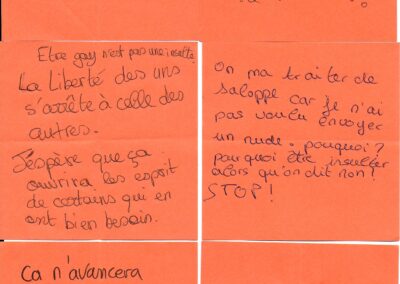 Etre gay n'est pas une insulte
La liberté des uns
s'arrête à celle des
autres.
J'espère que ça
ouvrira les esprit
de certains qui en
ont bien besoin.
On ma traiter de
saloppe car je n'ai
pas voulu envoyer
un nude. pourquoi?
pourquoi être insulter
alors qu'on dit non!
STOP!
Ca n'avancera